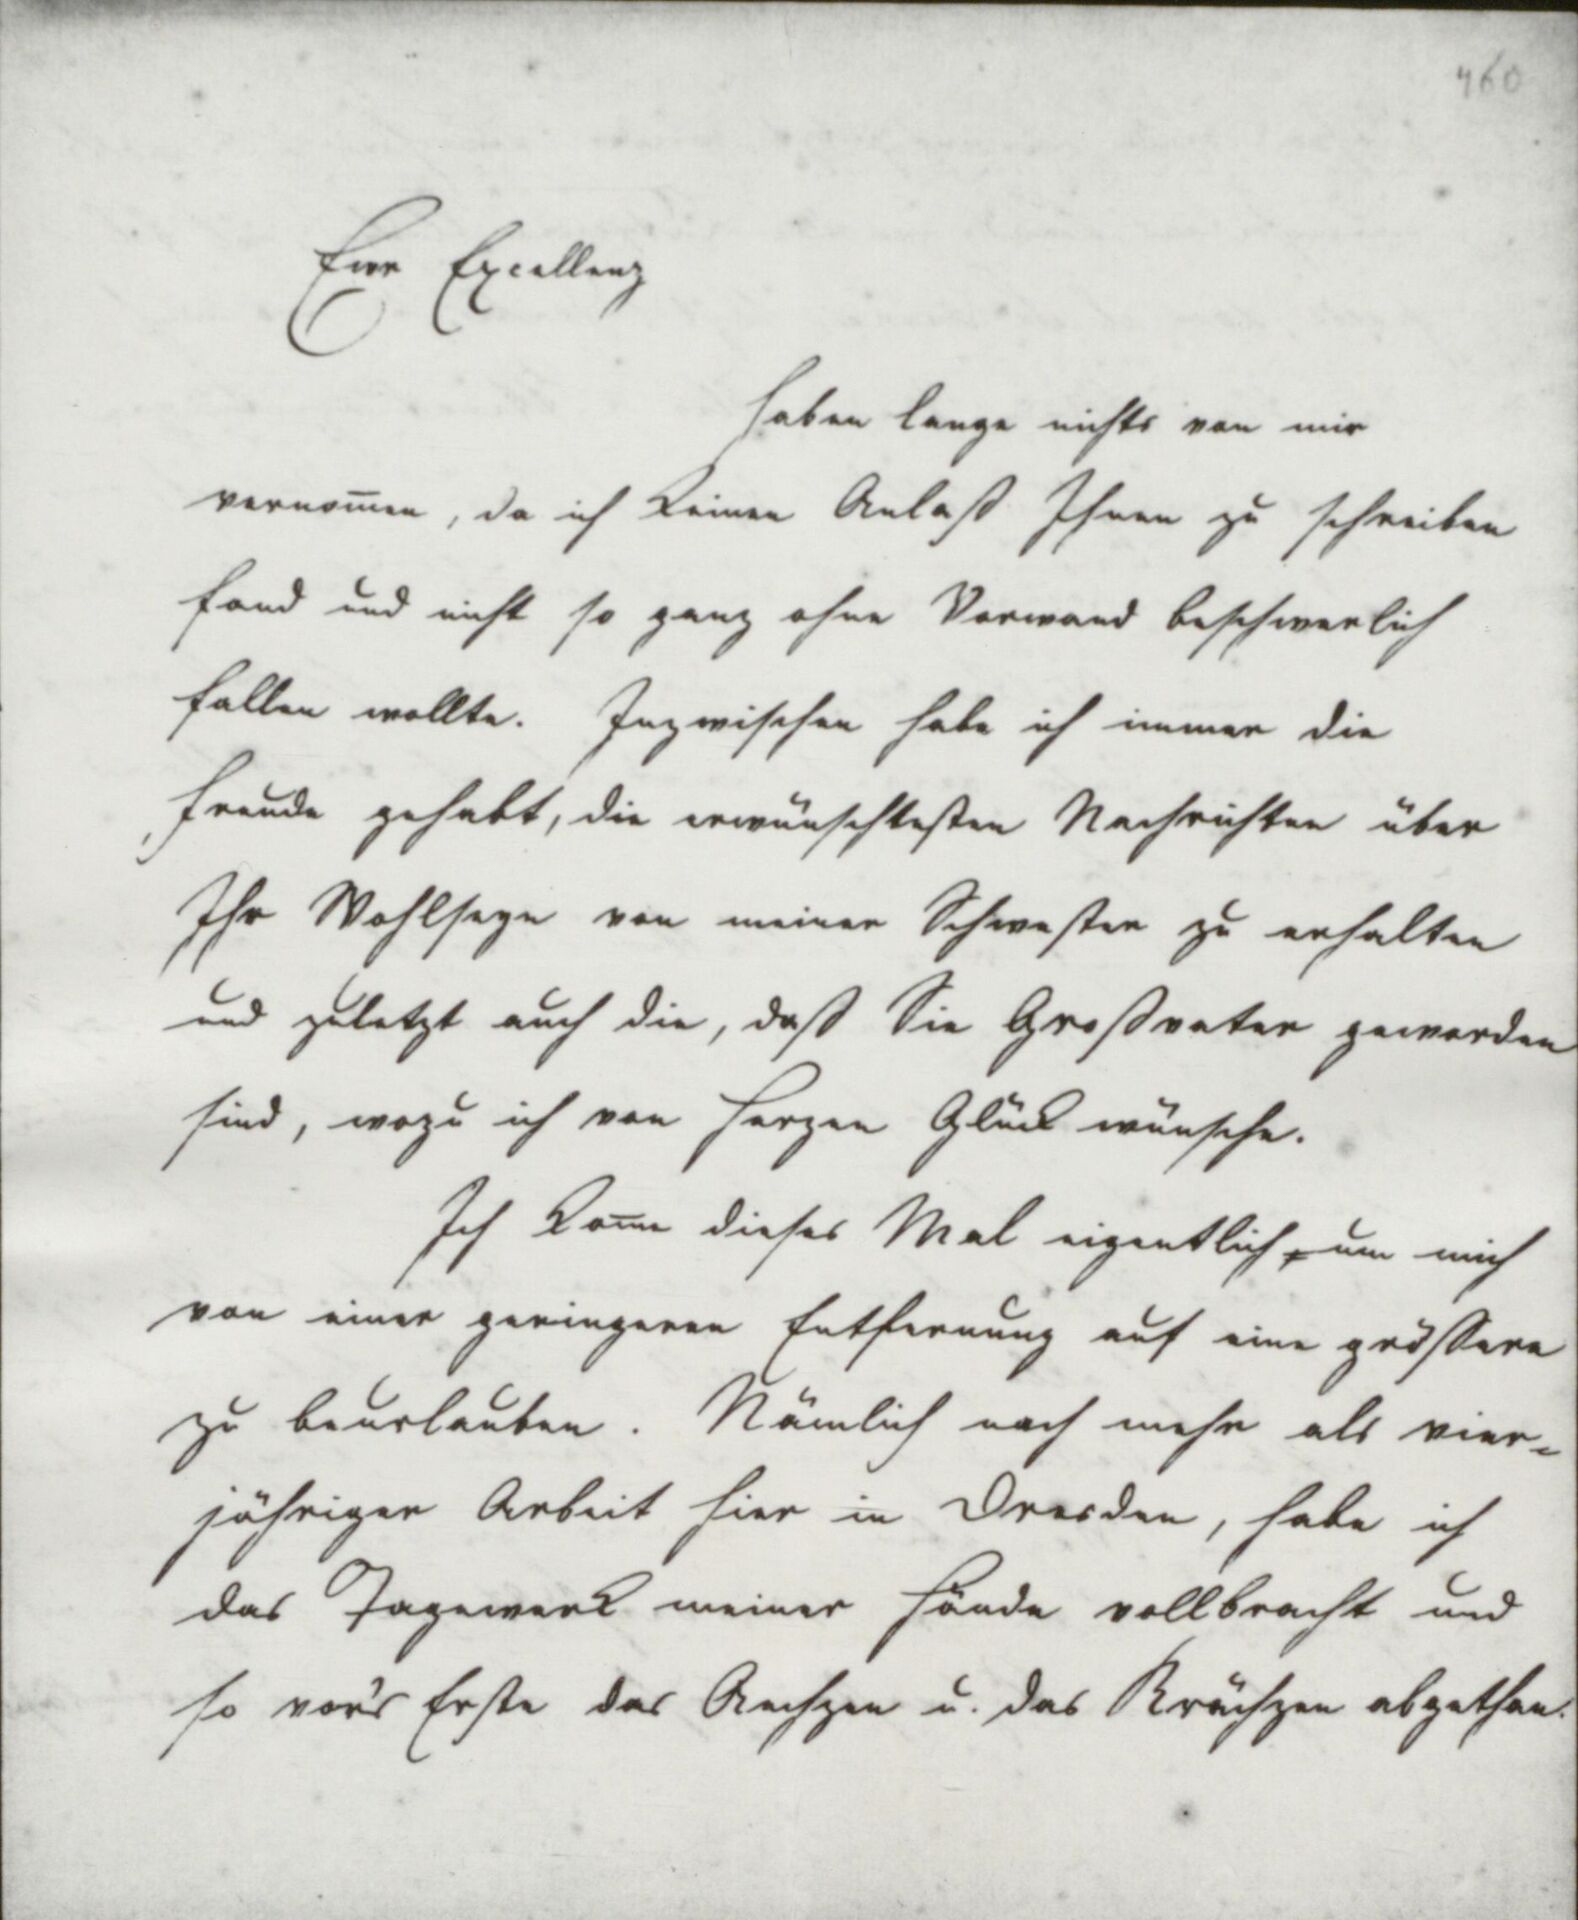 460
Eure Excellenz
haben lange nichts von mir
vernom̄en, da ich keinen Anlaß Ihnen zu schreiben
fand und nicht so ganz ohne Vorwand beschwerlich
fallen wollte. Inzwischen habe ich immer die
Freude gehabt, die erwünschtesten Nachrichten über
Ihr Wohlseyn von meiner Schwester zu erhalten
und zuletzt auch die, daß Sie Großvater geworden
sind, wozu ich von Herzen Glück wünsche.
Ich kom̄e dieses Mal eigentlich, um mich
von einer geringeren Entfernung auf eine größere
zu beurlauben. Nämlich nach mehr als vier-
jähriger Arbeit hier in Dresden, habe ich
das Tagewerk meiner Hände vollbracht und
so vor's Erste das Aechzen u. das Krächzen abgethan.